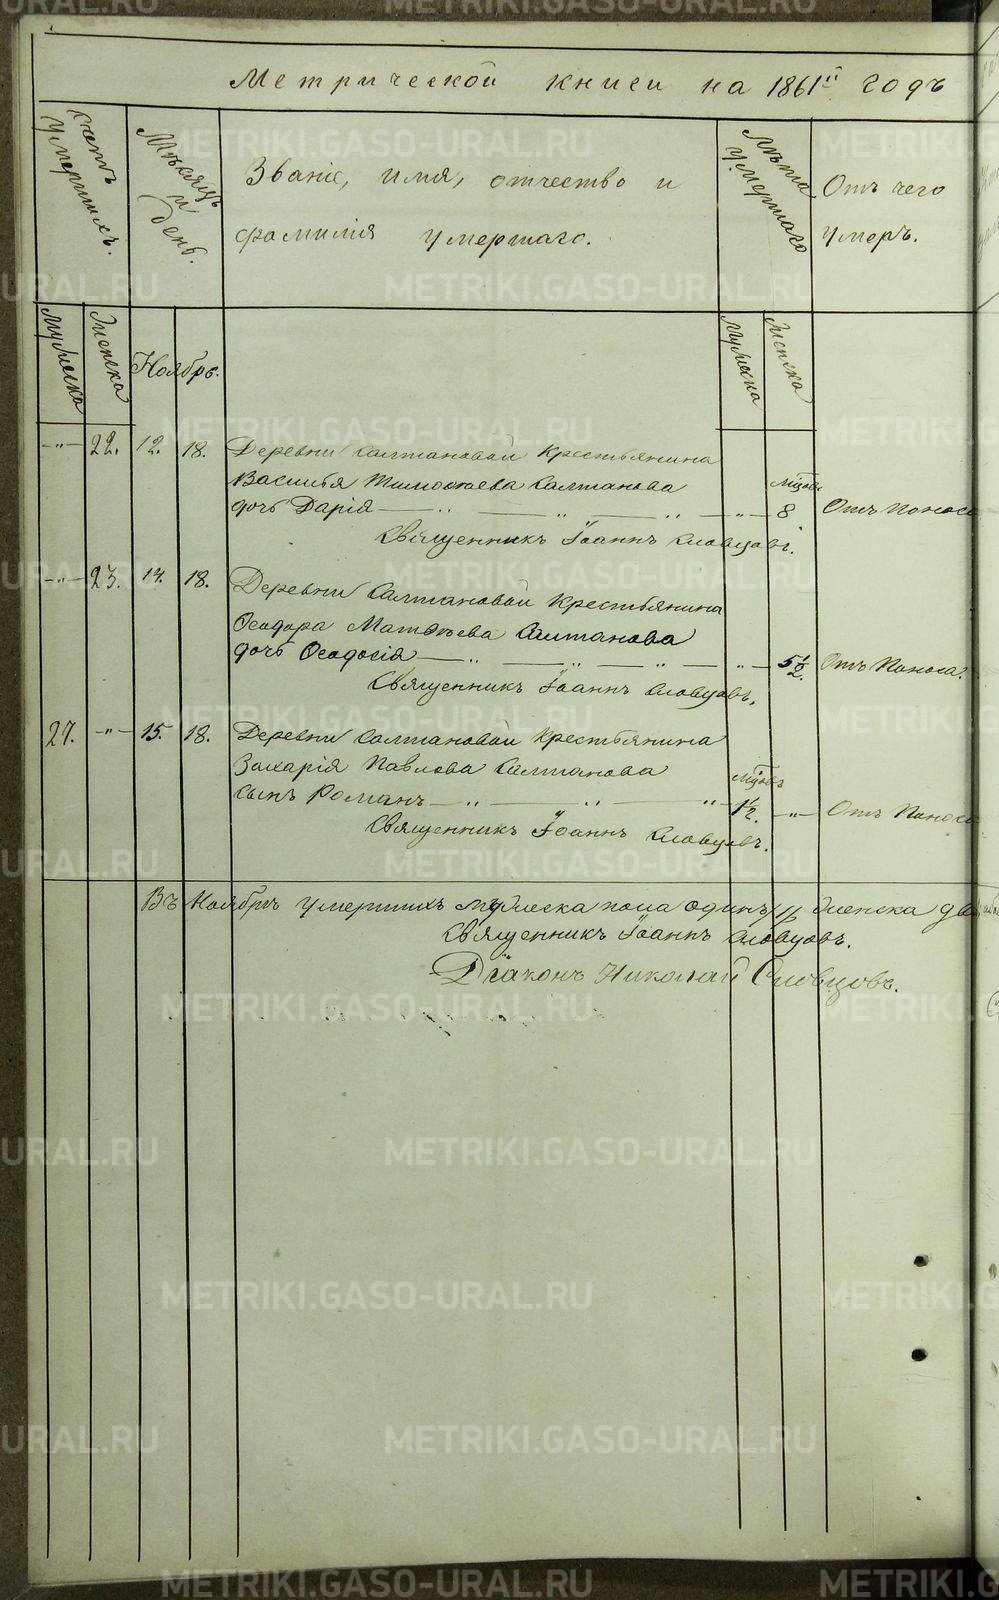 Метрической книги на 1861й годъ
Счетъ умершихъ.
Мѣсяцъ и день.
Званіе, имя, отчество и
фамилія умершаго.
Лѣта умершаго
Отъ чего
умеръ.
Мужеска
Женска
Ноябрь.
Мужеска
Женска
—"— 22. 12. 18. Деревни Салтановой Крестьянина
Василья Тимофѣева Салтанова мѣсяцовъ
дочь Дарія — " — " — " — " — 8 Отъ Поноса
Священникъ Іоаннъ Словцовъ.
—"— 23. 14. 18. Деревни Салтановой Крестьянина
Ѳеодора Матвѣева Салтанова
дочь Ѳеодосія — " — " — " — " — 5 1/2. Отъ Поноса.
Священникъ Іоаннъ Словцовъ.
27. —"— 15. 18. Деревни Салтановой Крестьянина
Захарія Павлова Салтанова мѣсяцовъ
сынъ Романъ — " — " — " — 1 1/2. —"— Отъ Поноса
Священникъ Іоаннъ Словцовъ.
Въ Ноябрѣ умершихъ мужеска пола одинъ /1/, женска два
Священникъ Іоаннъ Словцовъ.
Діаконъ Николай Словцовъ.
METRIKI.GASO-URAL.RU